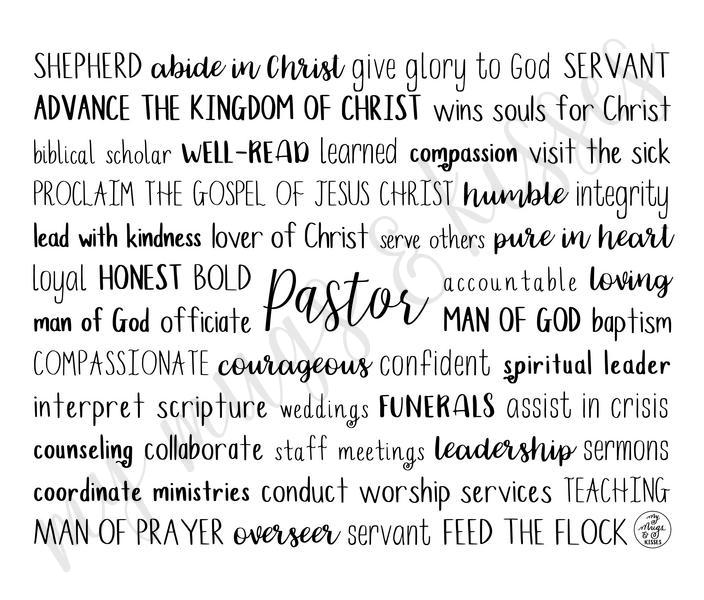 SHEPHERD abide in Christ give glory to God SERVANT
ADVANCE THE KINGDOM OF CHRIST wins souls for Christ
biblical scholar WELL-READ learned compassion visit the sick
PROCLAIM THE GOSPEL OF JESUS CHRIST humble integrity
lead with kindness lover of Christ serve others pure in heart
loyal HONEST BOLD
accountable loving
Pastor
man of God officiate
MAN OF GOD baptism
COMPASSIONATE courageous confident spiritual leader
interpret scripture weddings FUNERALS assist in crisis
counseling collaborate staff meetings leadership sermons
coordinate ministries conduct worship services TEACHING
MAN OF PRAYER overseer servant FEED THE FLOCK
my Mugs & KISSES
my mugs & kisses